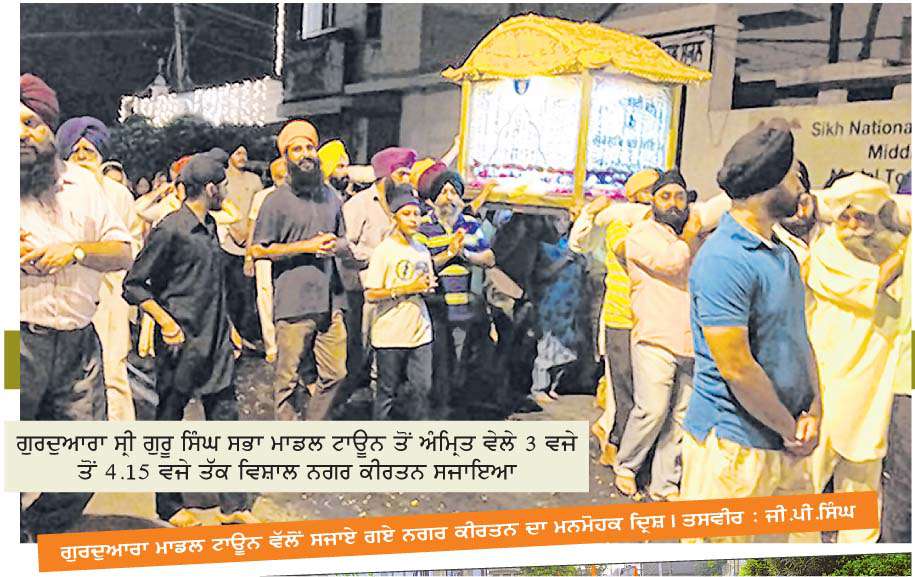 Sikh Nationa
Midd
Model To
ਗੁਰਦੁਆਰਾ ਸ੍ਰੀ ਗੁਰੂ ਸਿੰਘ ਸਭਾ ਮਾਡਲ ਟਾਊਨ ਤੋਂ ਅੰਮ੍ਰਿਤ ਵੇਲੇ 3 ਵਜੇ
ਤੋਂ 4.15 ਵਜੇ ਤੱਕ ਵਿਸ਼ਾਲ ਨਗਰ ਕੀਰਤਨ ਸਜਾਇਆ
ਗੁਰਦੁਆਰਾ ਮਾਡਲ ਟਾਊਨ ਵੱਲੋਂ ਸਜਾਏ ਗਏ ਨਗਰ ਕੀਰਤਨ ਦਾ ਮਨਮੋਹਕ ਦ੍ਰਿਸ਼। ਤਸਵੀਰ : ਜੀ.ਪੀ.ਸਿੰਘ